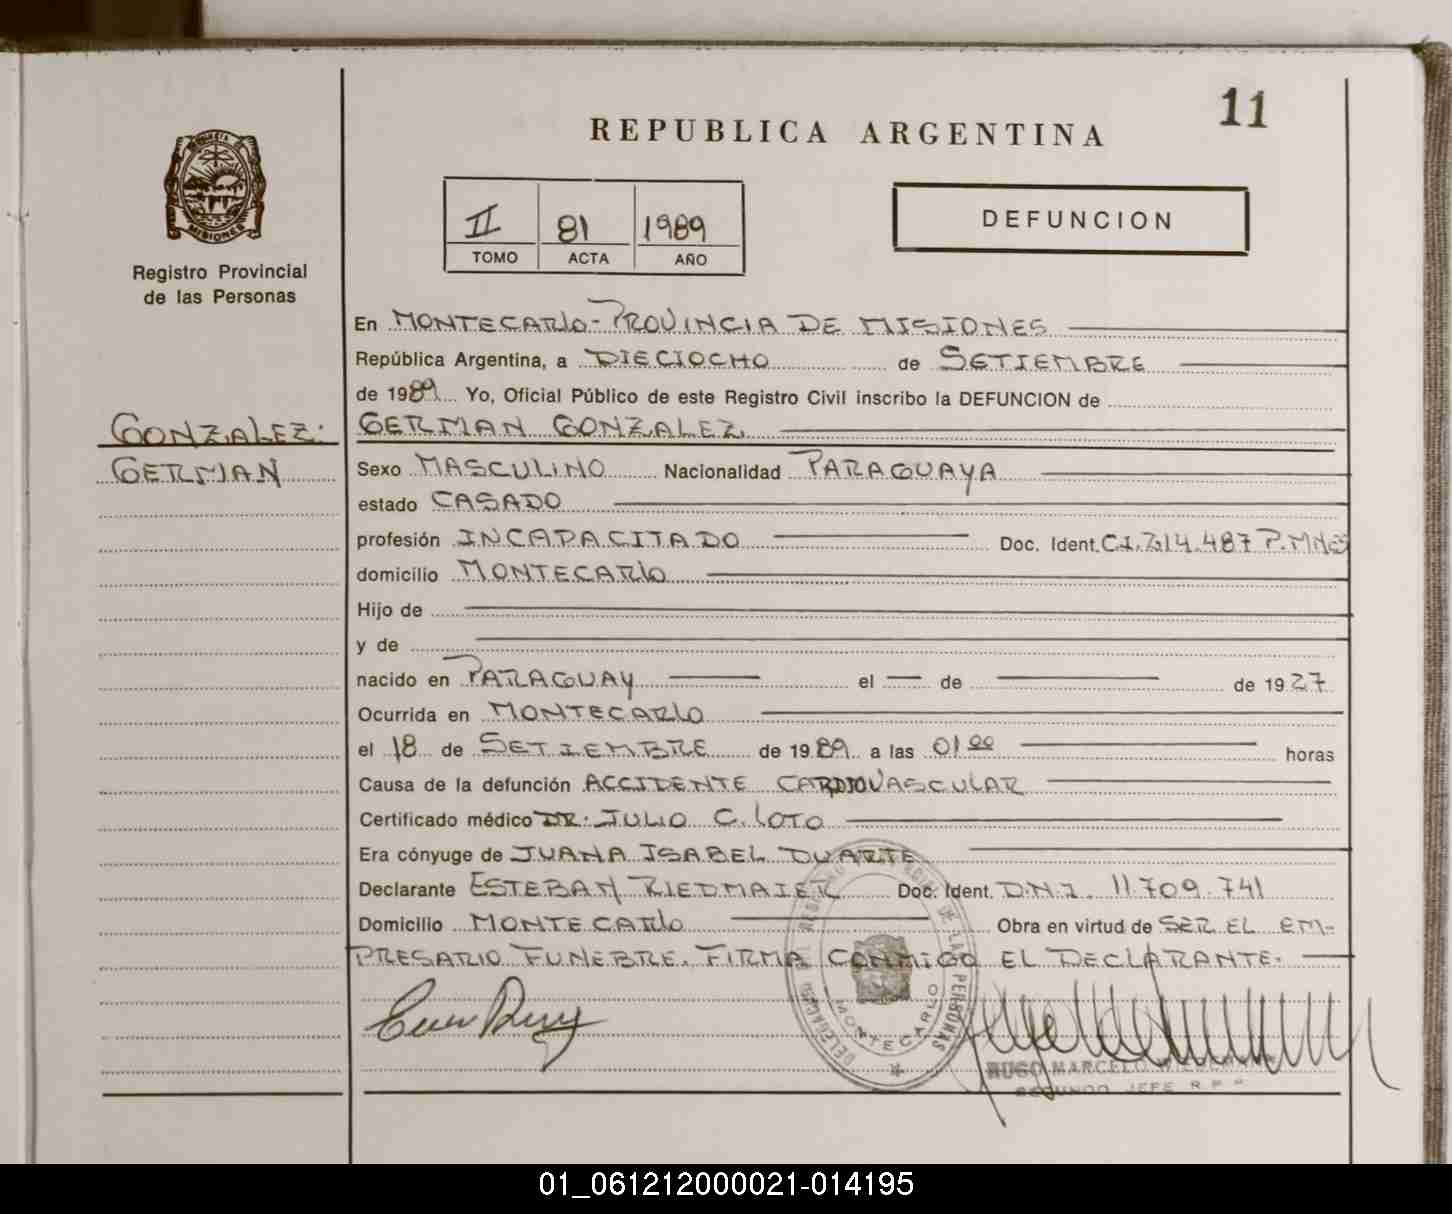 11
REPUBLICA ARGENTINA
II 81 1989
TOMO ACTA AÑO
DEFUNCION
MISIONES
Registro Provincial
de las Personas
GONZALEZ.
GERMAN
En MONTECARLO - PROVINCIA DE MISIONES
República Argentina, a DIECIOCHO de SETIEMBRE
de 1989 Yo, Oficial Público de este Registro Civil inscribo la DEFUNCION de
GERMAN GONZALEZ
Sexo MASCULINO Nacionalidad PARAGUAYA
estado CASADO
profesión INCAPACITADO Doc. Ident. C.I. 214.487 P. MNES
domicilio MONTECARLO
Hijo de
y de
nacido en PARAGUAY el de de 1927
Ocurrida en MONTECARLO
el 18 de SETIEMBRE de 1989 a las 01 00 horas
Causa de la defunción ACCIDENTE CARDIOVASCULAR
Certificado médico DR. JULIO C. LOTO
Era cónyuge de JUANA ISABEL DUARTE
Declarante ESTEBAN RIEDMAIER Doc. Ident. D.N.I. 11.709.741
Domicilio MONTECARLO Obra en virtud de SER EL EM-
PRESARIO FUNEBRE. FIRMA CONMIGO EL DECLARANTE.
DE LAS PERSONAS
MONTECARLO
HUGO MARCELO
SEGUNDO JEFE R.P.P.
01_061212000021-014195